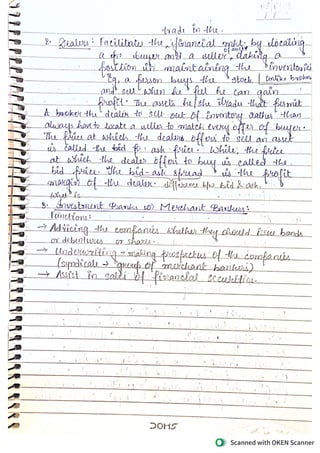 trade in the
2. Dealers: Facilitate the financial mkt by locating
a buyer and a seller, taking a
position in maintaining the inventories
Eg, a person buys the stock | online broker
and sell when he feel he can gain
profit. The assets he/she trade that permit
A broker the dealer to sell out of inventory rather than
always have to locate a seller to match every offer of buyer.
The price at which the dealers offers to sell an asset
is called the bid ask price. While, the price
at which the dealer offers to buy is called the
bid price. The bid-ask spread is the profit
margin of the dealer. difference b/w bid & ask.
What is
3. Investment Banks or Merchant Bankers:
Functions:
→ Advicing the companies whether they should issue bonds
or debentures or shares.
→ Underwriting - making prospectus of the companies
(syndicate → group of merchant bankers)
→ Assist in sales of financial securities.
DOMS
Scanned with OKEN Scanner